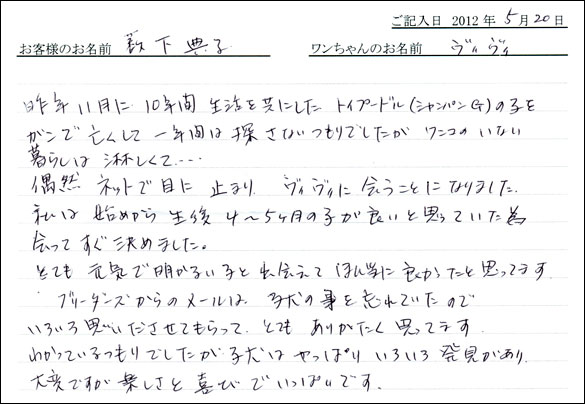 ご記入日 2012年 5月20日
お客様のお名前 薮下典子 ワンちゃんのお名前 ヴィヴィ
昨年11月に 10年間 生活を共にした トイプードル(シャンパンG)の子を
ガンで亡くして 一年間は 探さないつもりでしたが ワンコのいない
暮らしは 淋しくて・・・・
偶然 ネットで目に 止まり ヴィヴィに会うことになりました。
私は 始めから 生後 4〜5ヶ月の子が良いと思っていた為
会ってすぐ決めました。
とても 元気で明かるい子と出会えて ほんとうに良かったと思ってます
ブリーダンズからのメールは 子犬の事を忘れていたので
いろいろ思いださせてもらって、とても ありがたく思ってます
わかっているつもりでしたが子犬は やっぱり いろいろ 発見があり、
大変ですが楽しさと喜びでいっぱいです。